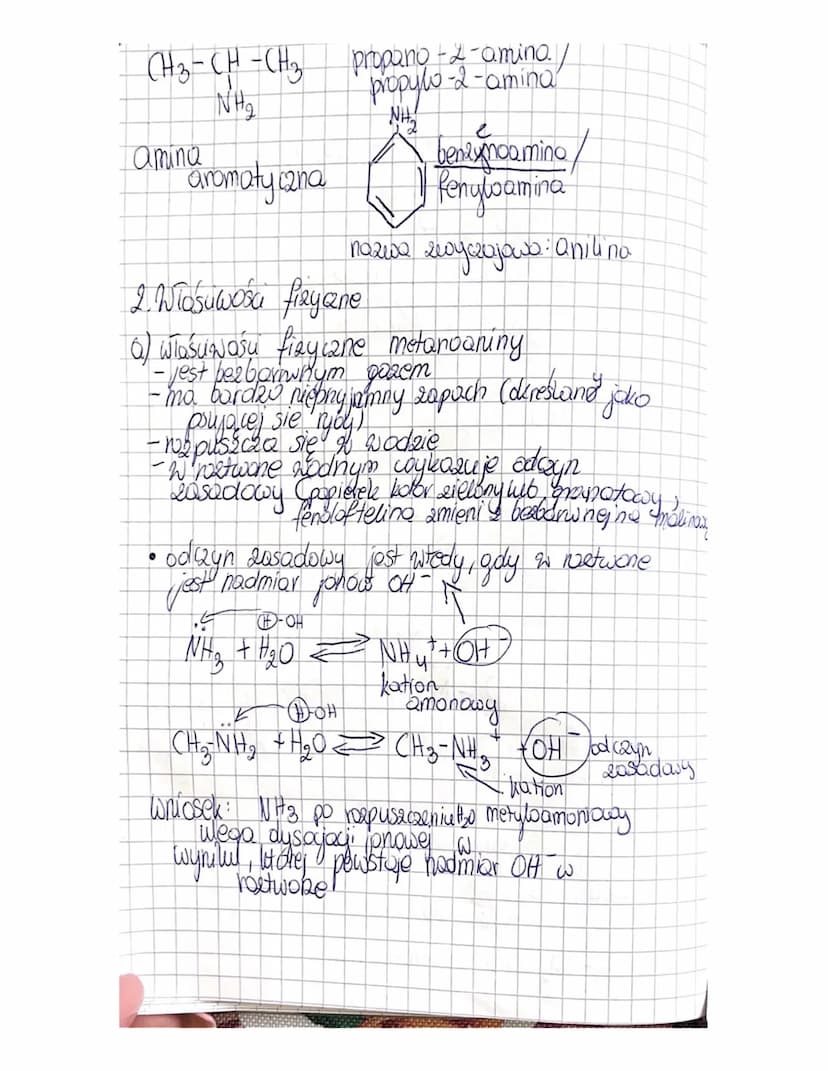 CH3-CH-CH3 propano-2-amina/
NH2 propylo-2-amina
NH2
amina benzenoamina/
aromatyczna fenyloamina
nazwa zwyczajowa: anilina
2. Właściwości fizyczne
a) właściwości fizyczne metanoaminy
- jest bezbarwnym gazem
- ma bardzo nieprzyjamny zapach (określany jako
psującej się ryby)
- rozpuszcza się w wodzie
- w roztworze wodnym wykazuje odczyn
zasadowy (papierek kolor zielony lub granatowy,
fenoloftelina zmieni z bezbarwnej na malinową
• odczyn zasadowy jest wtedy, gdy w roztworze
jest nadmiar jonów OH⁻
H-OH
NH3 + H2O ⇌ NH4⁺ + OH⁻
kation
amonowy
H-OH
CH3-NH2 + H2O ⇌ CH3-NH3⁺ + OH⁻ odczyn
zasadowy
kation
wniosek: NH3 po rozpuszczeniu H2O metyloamoniowy
ulega dysocjacji jonowej w
wyniku, której powstaje nadmiar OH⁻ w
roztworze